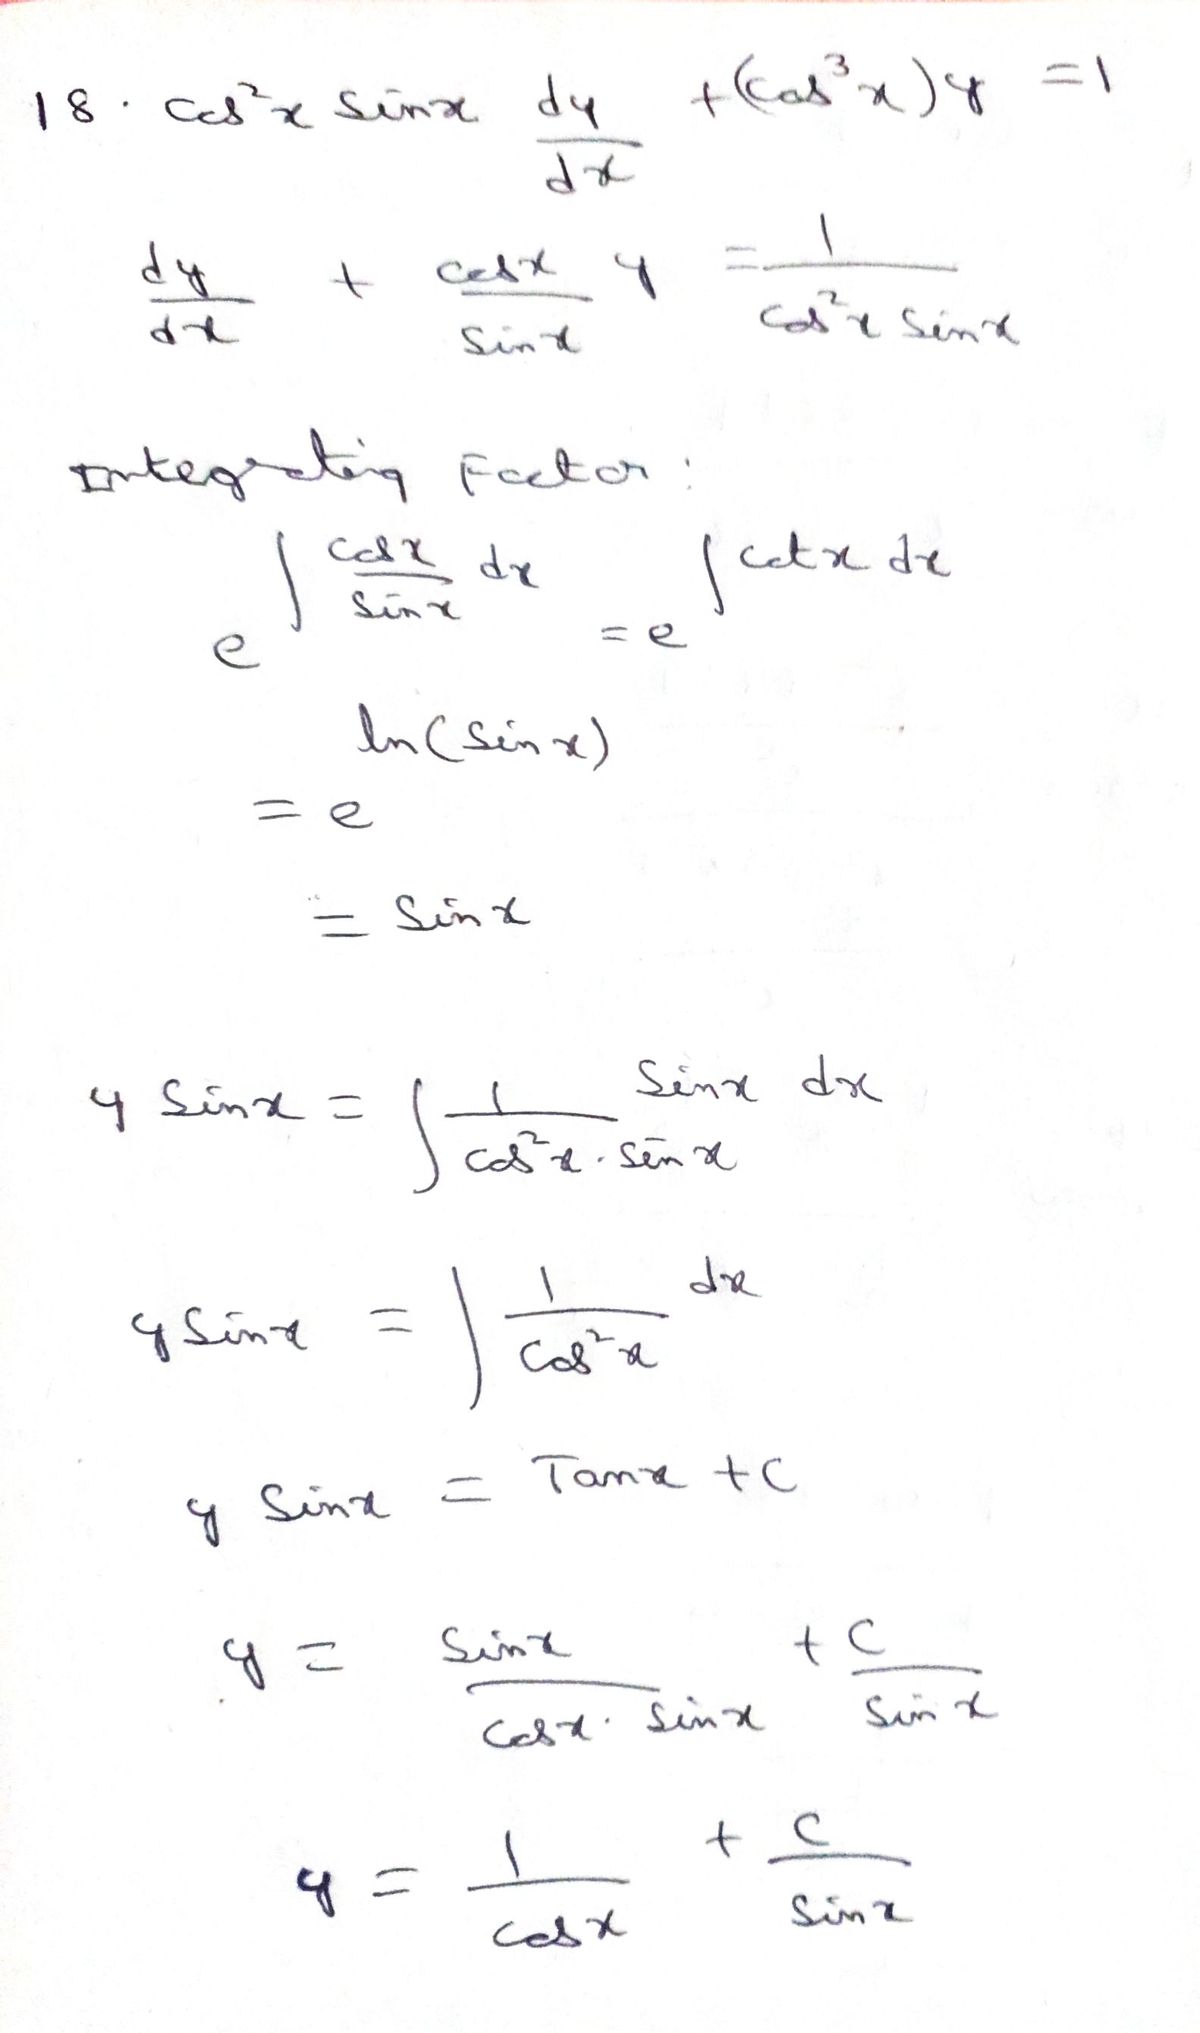 18. cos²x sinx dy/dx + (cos³x)y = 1
dy/dx + cosx/sinx y = 1/(cos²x sinx)
Integrating Factor:
e^∫ cosx/sinx dx = e^∫ cotx dx
= e^ln(sinx)
= sinx
y sinx = ∫ 1/(cos²x · sinx) sinx dx
y sinx = ∫ 1/cos²x dx
y sinx = Tanx + C
y = sinx/(cosx · sinx) + C/sinx
y = 1/cosx + C/sinx